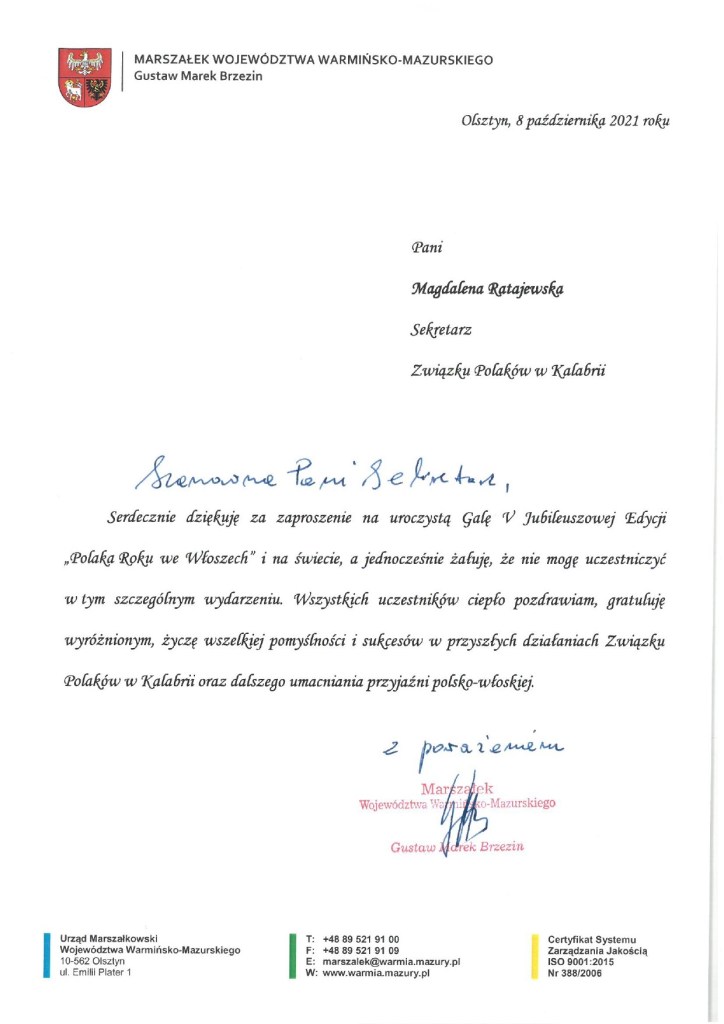 MARSZAŁEK WOJEWÓDZTWA WARMIŃSKO-MAZURSKIEGO
Gustaw Marek Brzezin
Olsztyn, 8 października 2021 roku
Pani
Magdalena Ratajewska
Sekretarz
Związku Polaków w Kalabrii
Szanowna Pani Sekretarz,
Serdecznie dziękuję za zaproszenie na uroczystą Galę V Jubileuszowej Edycji
„Polaka Roku we Włoszech" i na świecie, a jednocześnie żałuję, że nie mogę uczestniczyć
w tym szczególnym wydarzeniu. Wszystkich uczestników ciepło pozdrawiam, gratuluję
wyróżnionym, życzę wszelkiej pomyślności i sukcesów w przyszłych działaniach Związku
Polaków w Kalabrii oraz dalszego umacniania przyjaźni polsko-włoskiej.
z poważaniem
Marszałek
Województwa Warmińsko-Mazurskiego
Gustaw Marek Brzezin
Urząd Marszałkowski
Województwa Warmińsko-Mazurskiego
10-562 Olsztyn
ul. Emilii Plater 1
T: +48 89 521 91 00
F: +48 89 521 91 09
E: marszalek@warmia.mazury.pl
W: www.warmia.mazury.pl
Certyfikat Systemu
Zarządzania Jakością
ISO 9001:2015
Nr 388/2006